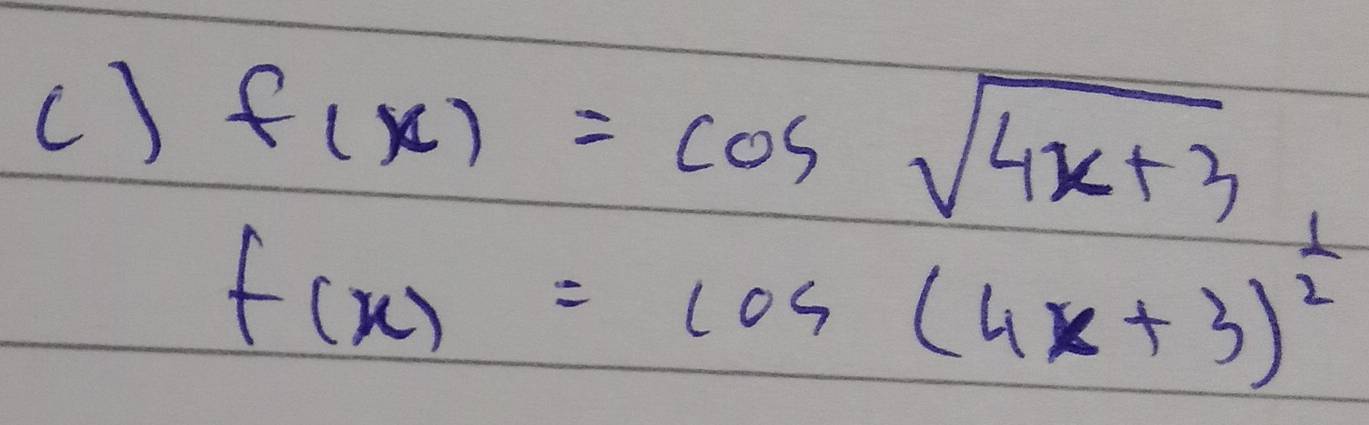 c) f(x) = cos √(4x+3)
f(x) = cos (4x+3)^(1/2)